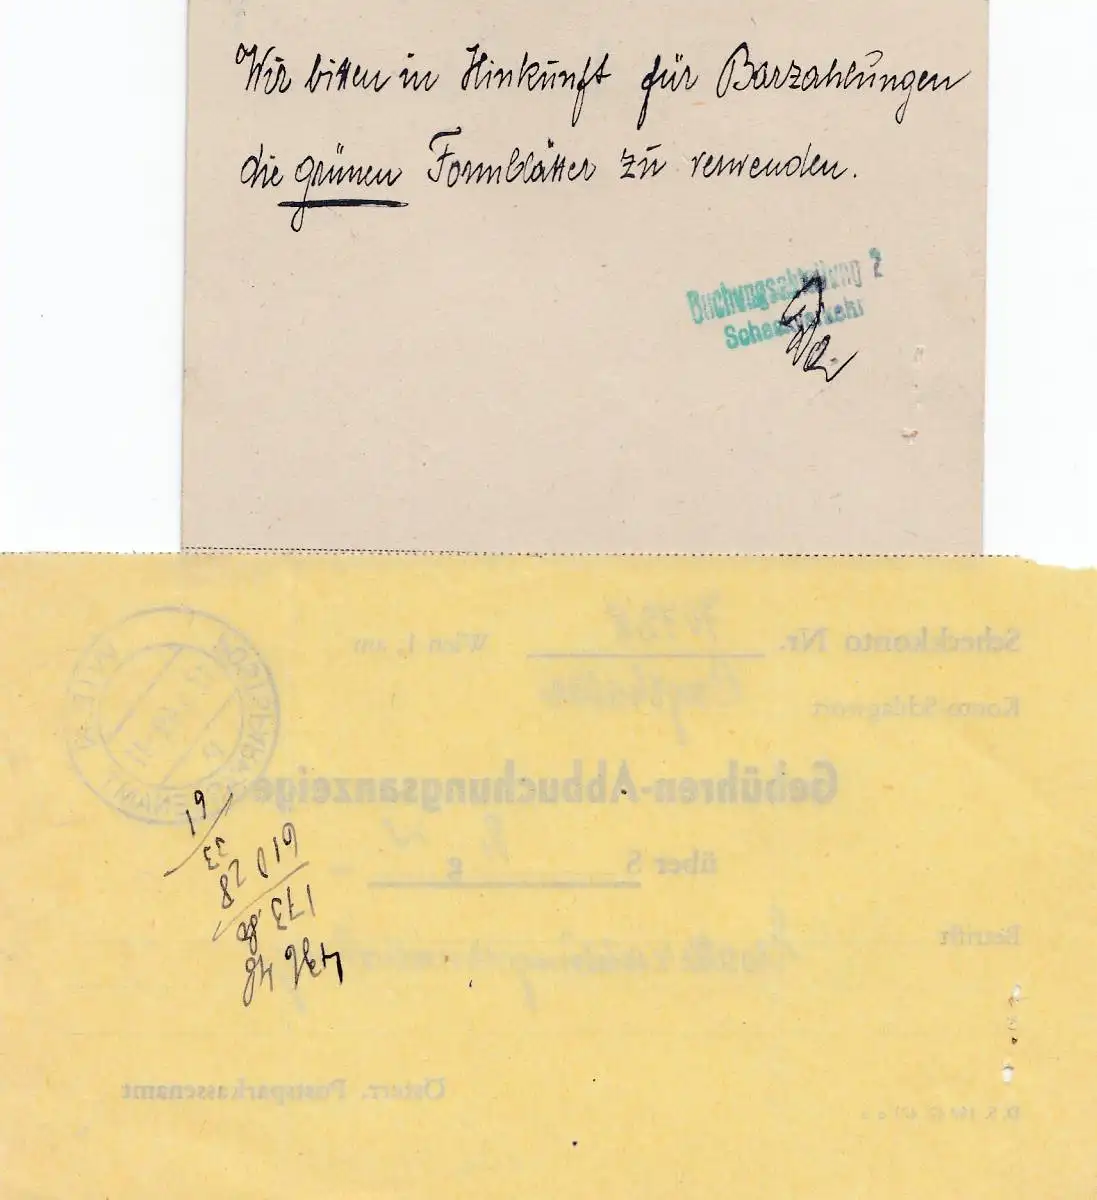 Wir bitten in Hinkunft für Barzahlungen
die grünen Formblätter zu verwenden.
Buchungsabteilung 2
Scheckverkehr
Scheckkonto Nr. Wien 1, am
Konto-Schlagwort
Gebühren-Abbuchungsanzeige
über S g
Betrifft
Österr. Postsparkassenamt
POSTSPARKASSENAMT WIEN
61
33
610 28
173 80
436 48